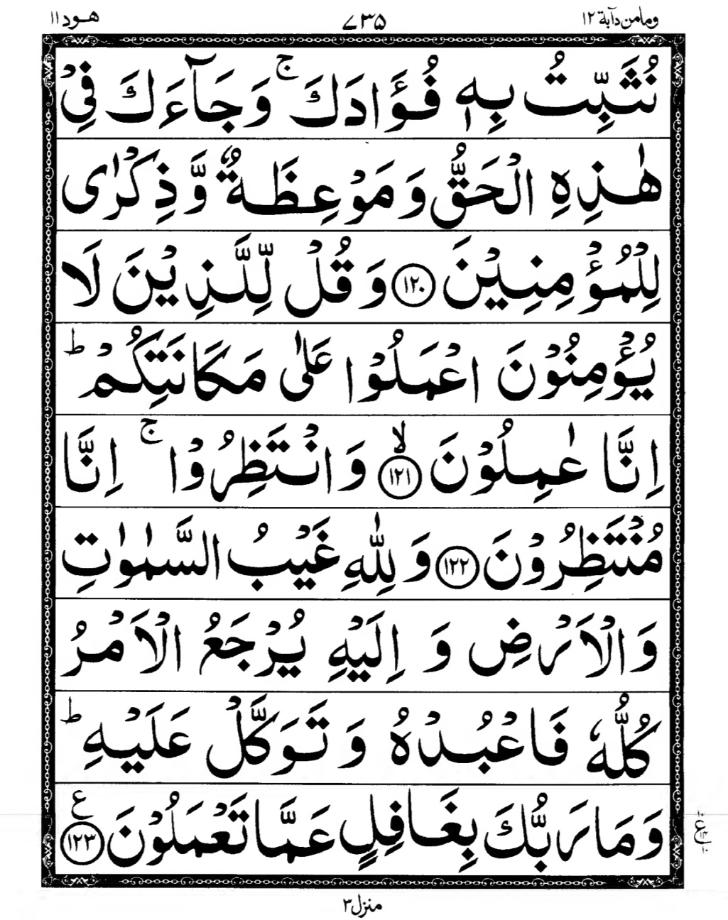 ومامن دآبة ١٢ ٧٣٥ هود ١١
نُثَبِّتُ بِهٖ فُؤَادَكَ ۚ وَجَآءَكَ فِيْ
هٰذِهِ الْحَقُّ وَمَوْعِظَةٌ وَّذِكْرٰى
لِلْمُؤْمِنِيْنَ ﴿١٢٠﴾ وَقُلْ لِّلَّذِيْنَ لَا
يُؤْمِنُوْنَ اعْمَلُوْا عَلٰى مَكَانَتِكُمْ ؕ
اِنَّا عٰمِلُوْنَ ۙ﴿١٢١﴾ وَانْتَظِرُوْا ۚ اِنَّا
مُنْتَظِرُوْنَ ﴿١٢٢﴾ وَلِلّٰهِ غَيْبُ السَّمٰوٰتِ
وَالْاَرْضِ وَاِلَيْهِ يُرْجَعُ الْاَمْرُ
كُلُّهٗ فَاعْبُدْهُ وَتَوَكَّلْ عَلَيْهِ ؕ
وَمَا رَبُّكَ بِغَافِلٍ عَمَّا تَعْمَلُوْنَ ﴿١٢٣﴾ ع
منزل ٣